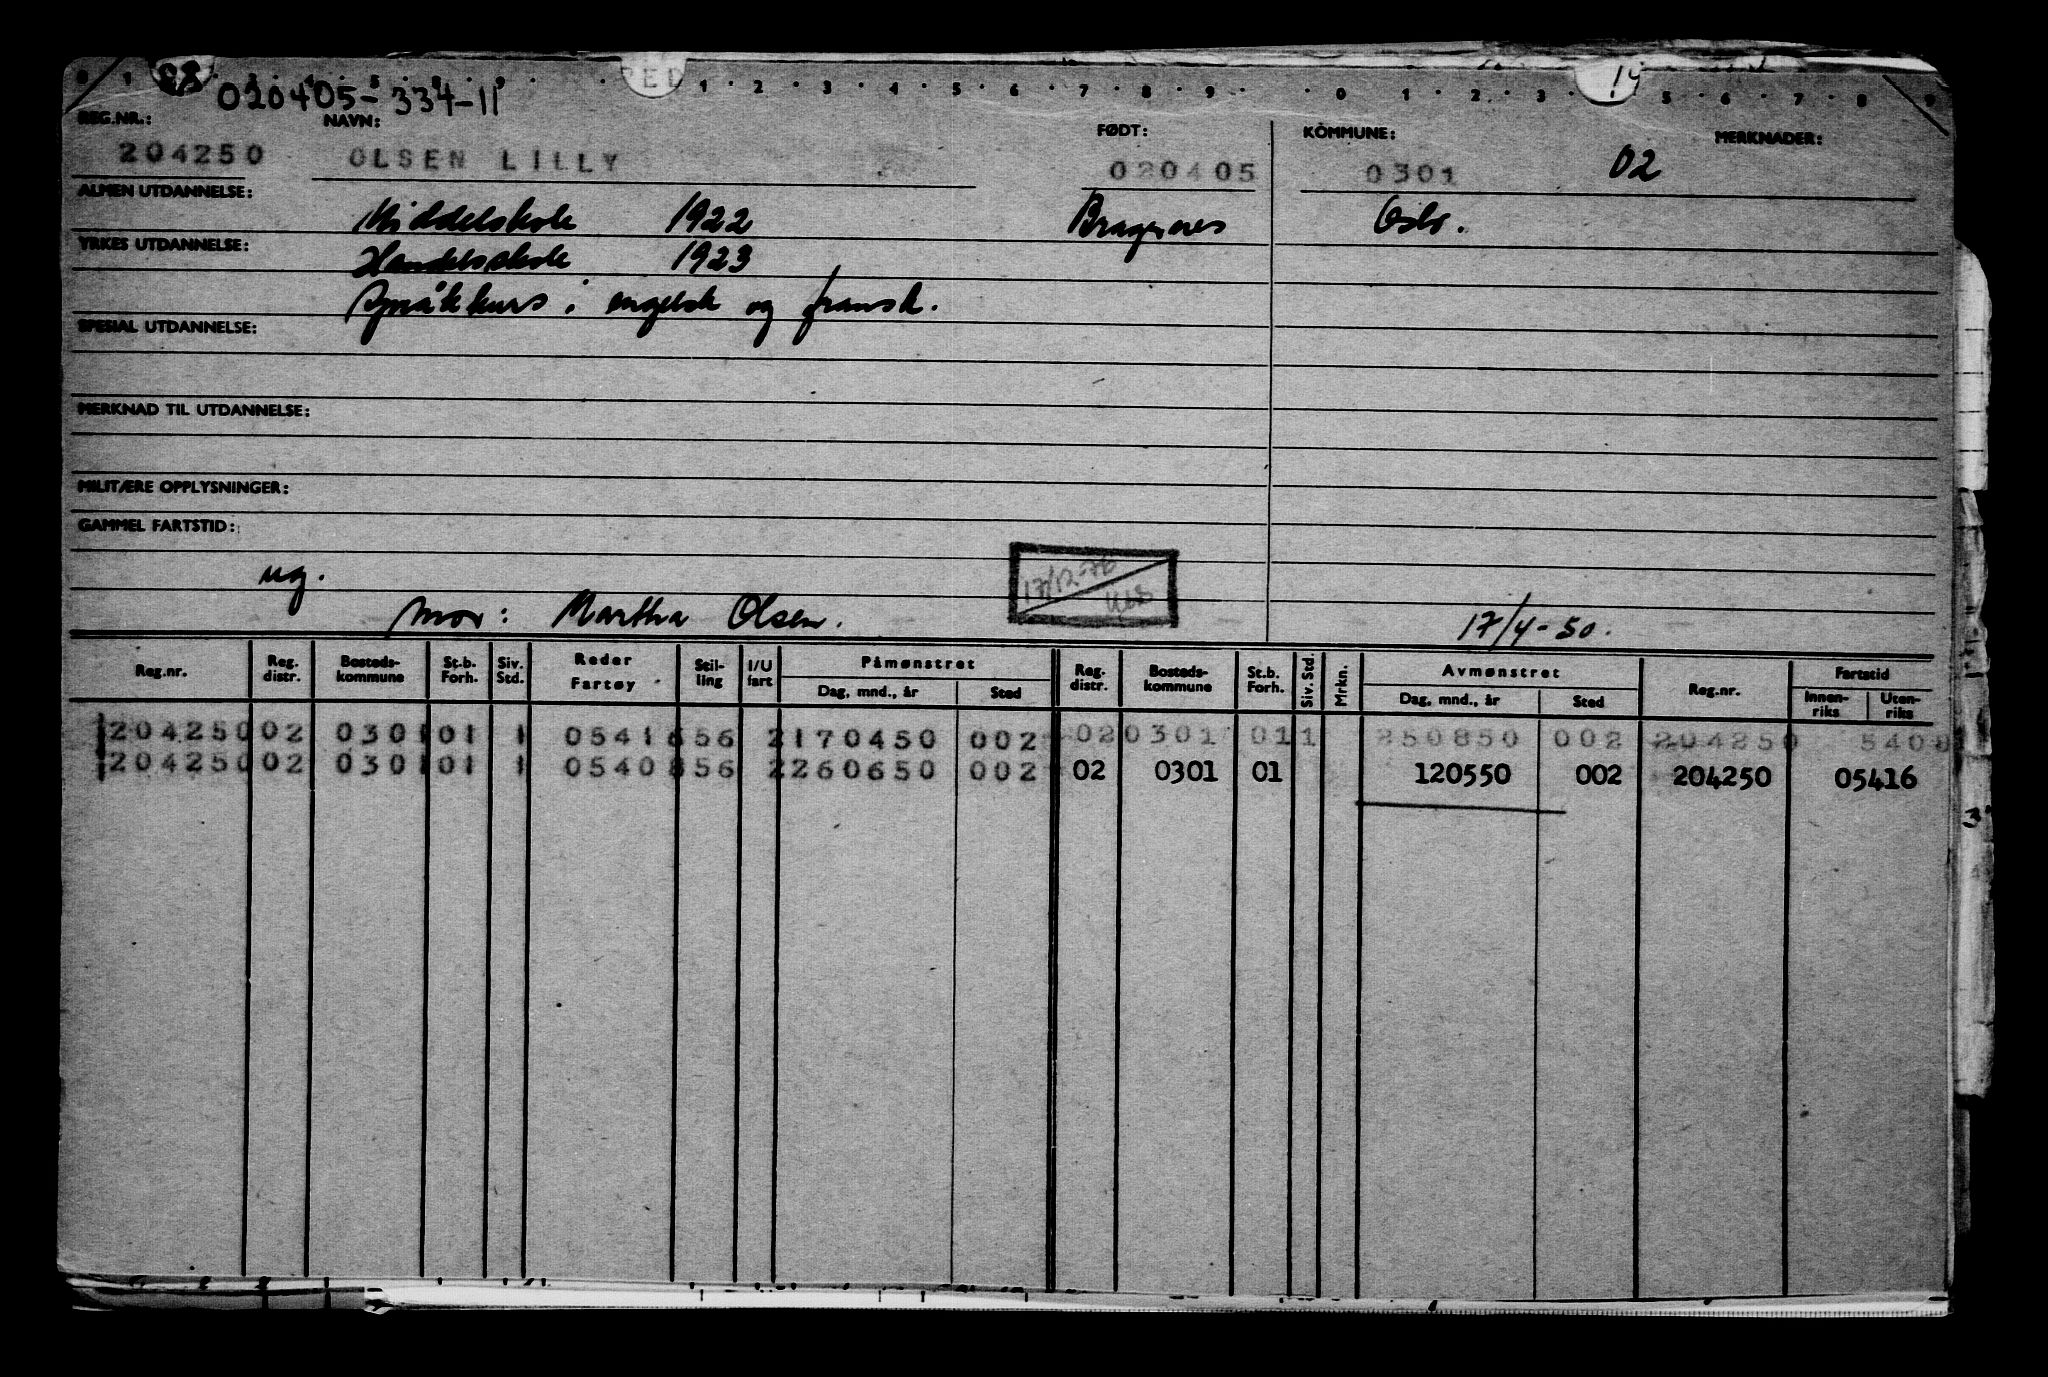 020405-334-11
REG.NR.: NAVN: FØDT: KOMMUNE: MERKNADER:
204250 OLSEN LILLY 020405 0301 02
ALMEN UTDANNELSE: Middelskole 1922 Bragernes Oslo.
YRKES UTDANNELSE: Handelsskole 1923
Språkkurs i engelsk og fransk.
SPESIAL UTDANNELSE:
MERKNAD TIL UTDANNELSE:
MILITÆRE OPPLYSNINGER:
GAMMEL FARTSTID:
ug. 17/12-76
Mor: Martha Olsen. 17/4-50.
Reg.nr. Reg. distr. Bosteds-kommune St.b. Forh. Siv. Std. Reder Fartøy Stil-ling I/U fart Påmønstret Dag, mnd., år Sted Reg. distr. Bosteds-kommune St.b. Forh. Siv. Std. Mrkn. Avmønstret Dag, mnd., år Sted Reg.nr. Fartstid Innen-riks Uten-riks
204250 02 0301 01 1 0541 656 2 170450 002 02 0301 01 1 250850 002 204250 5408
204250 02 0301 01 1 0540 856 2 260650 002 02 0301 01 120550 002 204250 05416